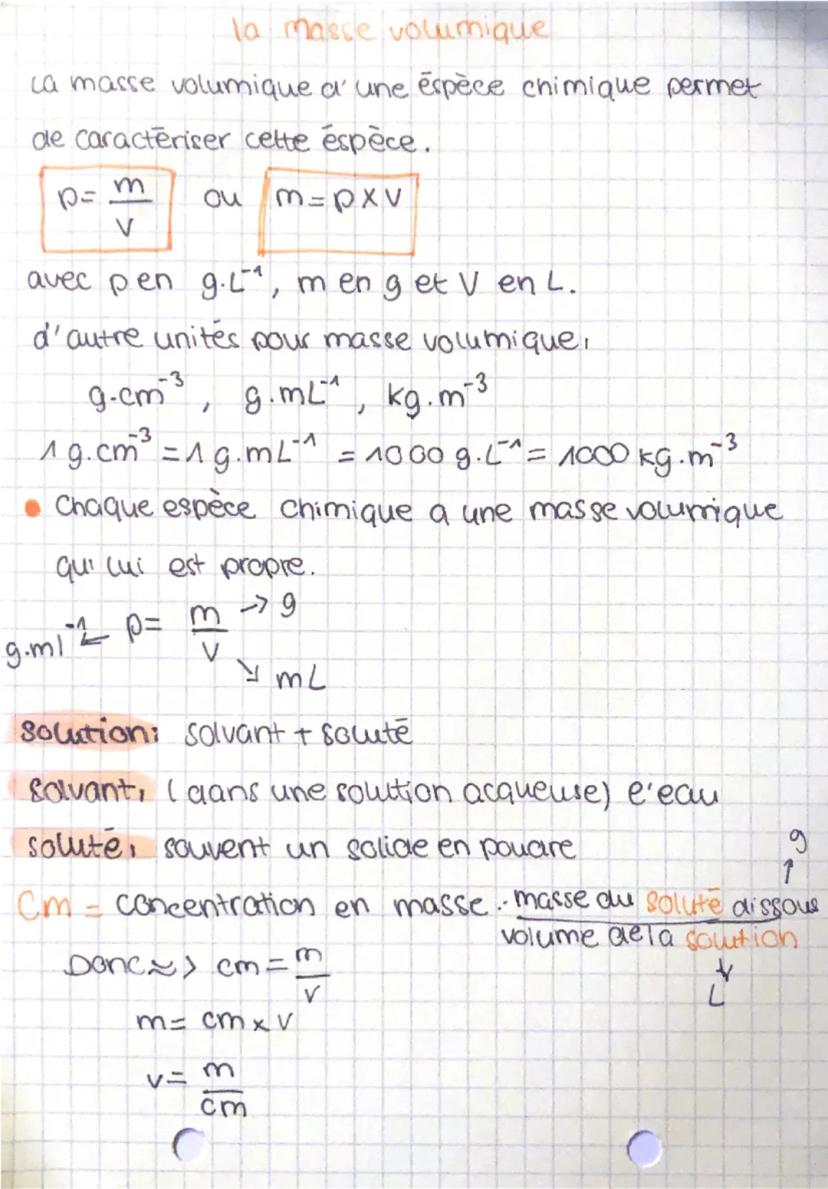 la masse volumique
La masse volumique d'une éspèce chimique permet
de caractériser cette éspèce.
ρ = m/V ou m = ρ x V
avec ρ en g.L⁻¹, m en g et V en L.
d'autre unités pour masse volumique:
g.cm⁻³, g.mL⁻¹, kg.m⁻³
1 g.cm⁻³ = 1 g.mL⁻¹ = 1000 g.L⁻¹ = 1000 kg.m⁻³
• Chaque espèce chimique a une masse volumique
qui lui est propre.
g.ml⁻¹ ← ρ = m/V → g
↘ mL
Solution: solvant + soluté
Solvant: (dans une solution acqueuse) l'eau
soluté: souvent un solide en poudre
g
↑
Cm = concentration en masse : masse du soluté dissous
volume de la solution
↓
L
Donc ~> cm = m/v
m = cm x v
v = m/cm